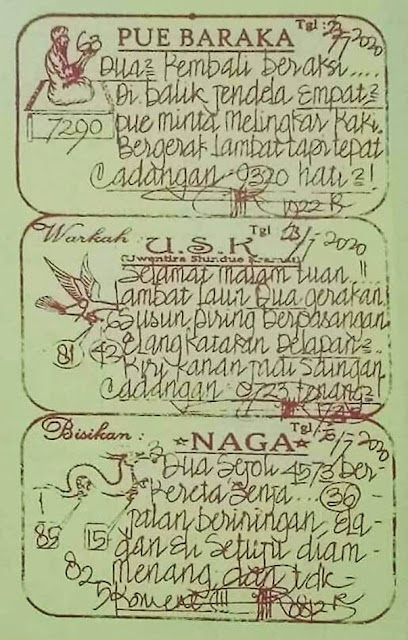 Tgl : 22/7 2020
PUE BARAKA
63
Dua² Kembali beraksi....
Di balik jendela Empat²
7290
pue minta melingkar kaki.
Bergerak lambat tapi tepat
Cadangan 9320 hati²!
1922 B
Warkah : Tgl 23/7 2020
U.S.K
(Uwentira Sinduo Kramat)
Selamat malam tuan !!
Lambat laun Dua gerakan
Susun piring berpasangan
81 42
Elang katakan Delapan²..
Kiri kanan jadi saingan
Cadangan 0723 tenang²!
Bisikan : Tgl /7 2020
NAGA
Dua Sejoli 4573 ber-
kereta Senja... 36 -
jalan beriringan, Ela-
85 15
dan Eli Setuju diam-
82
menang dan tdk-
5 Koment !!! 0812 B